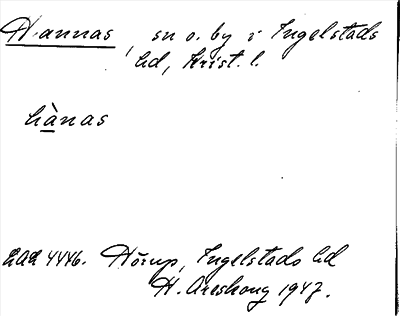 Hannas, sn o. by i Ingelstads
hd, Krist. l.
hànas
LAL 4446. Hörup, Ingelstads hd
H. Areskoug 1947.